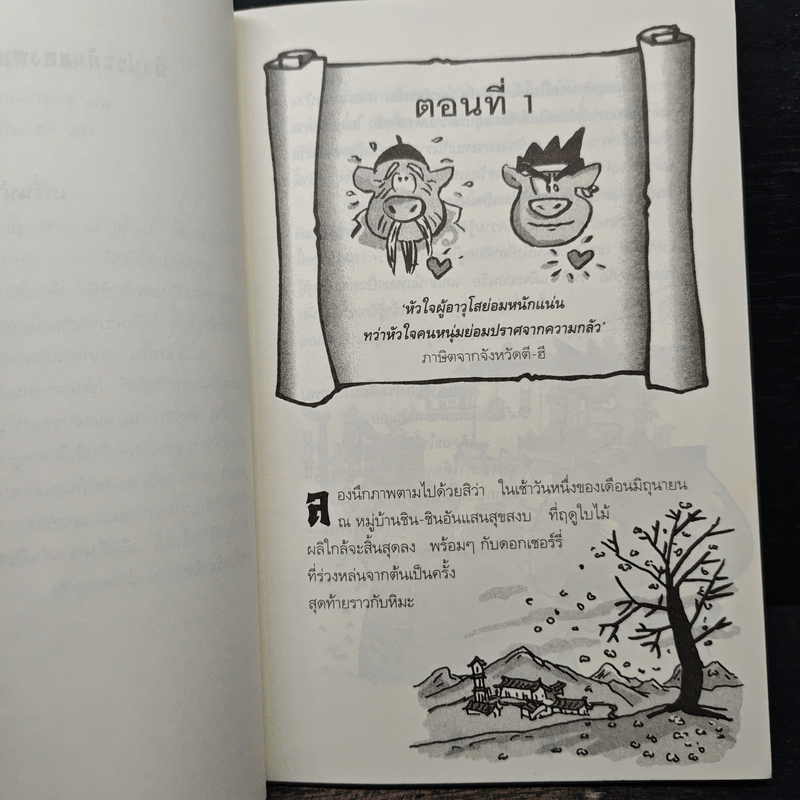 ตอนที่ 1
'หัวใจผู้อาวุโสย่อมหนักแน่น
ทว่าหัวใจคนหนุ่มย่อมปราศจากความกลัว'
ภาษิตจากจังหวัดตี-ฮี
ลองนึกภาพตามไปด้วยสิว่า ในเช้าวันหนึ่งของเดือนมิถุนายน
ณ หมู่บ้านชิน-ชินอันแสนสุขสงบ ที่ฤดูใบไม้
ผลิใกล้จะสิ้นสุดลง พร้อมๆ กับดอกเชอร์รี่
ที่ร่วงหล่นจากต้นเป็นครั้ง
สุดท้ายราวกับหิมะ